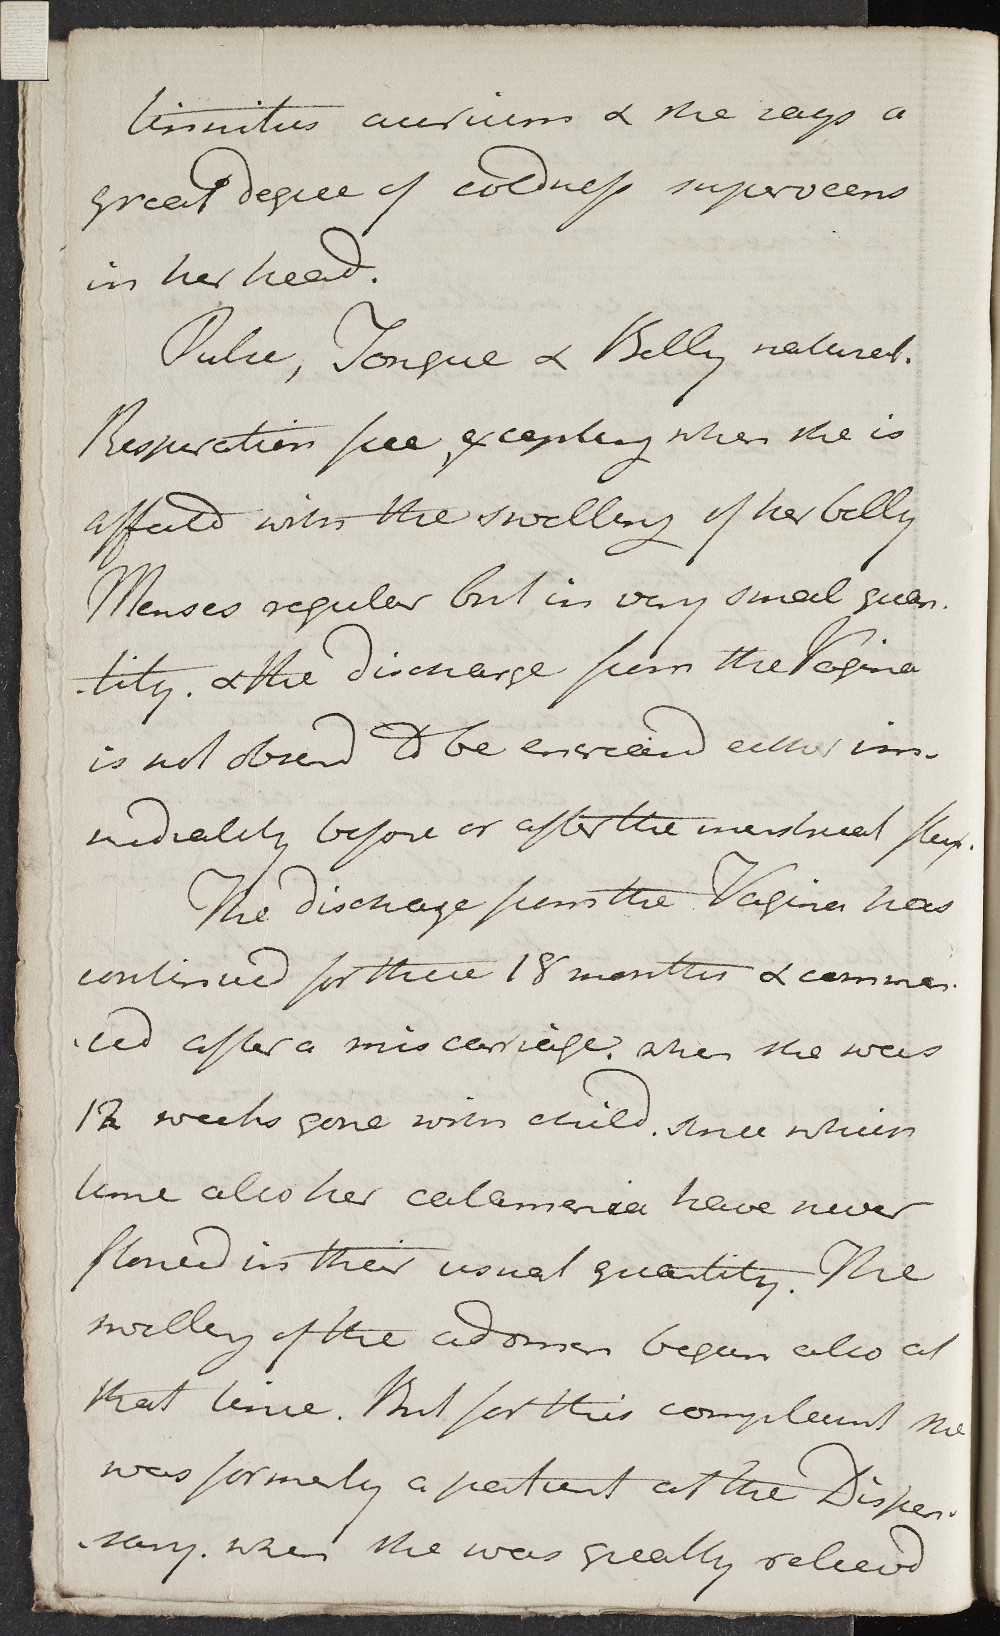 tinnitus aurium & she says a
great degree of coldness supervens
in her head.
Pulse, Tongue & Belly natural.
Respiration free, excepting when she is
affectd with the swelling of her belly
Menses regular but in very small quan.
.tity. & the discharge from the Vagina
is not obsend to be encreasd either im-
mediately before or after the menstrual flux.
The discharge from the Vagina has
continued for these 18 months & commen.
.ced after a miscarriage. when she was
12 weeks gone with child. since which
time also her catamenia have never
flowed in their usual quantity. The
swelling of the adomen began also at
that time. But for this complaint she
was formerly a patient at the Dispen.
.sary. when she was greatly relievd